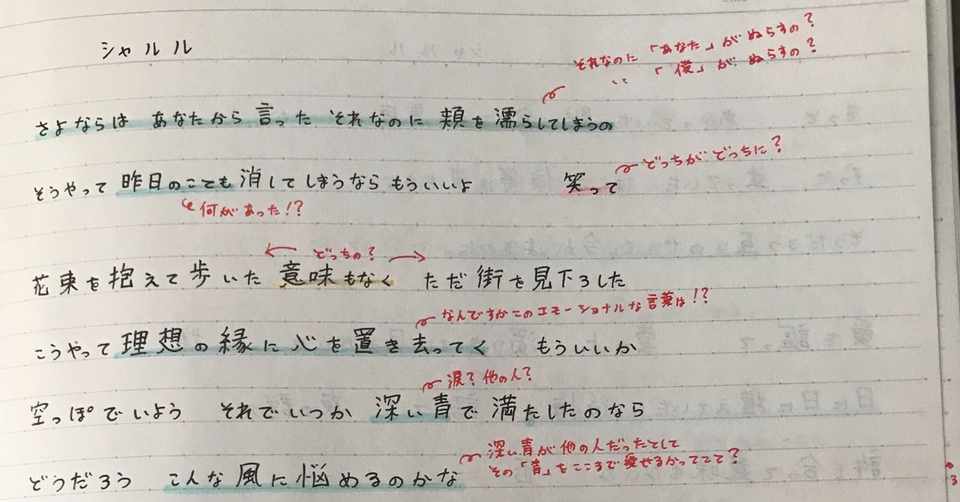 シャルル
それなのに「あなた」がぬらすの?
〃 「僕」がぬらすの?
さよならは あなたから 言った それなのに 頬を濡らしてしまうの
どっちがどっちに?
そうやって 昨日のことも 消してしまうなら もういいよ 笑って
何があった!?
どっちの?
花束を抱えて歩いた 意味もなく ただ街を見下ろした
なんですかこのエモーショナルな言葉は!?
こうやって理想の縁に心を置き去ってく もういいか
涙?他の人?
空っぽでいよう それでいつか 深い青で満たしたのなら
深い青が他の人だったとして
その「青」をこころで愛せるかってこと?
どうだろう こんな風に悩めるのかな